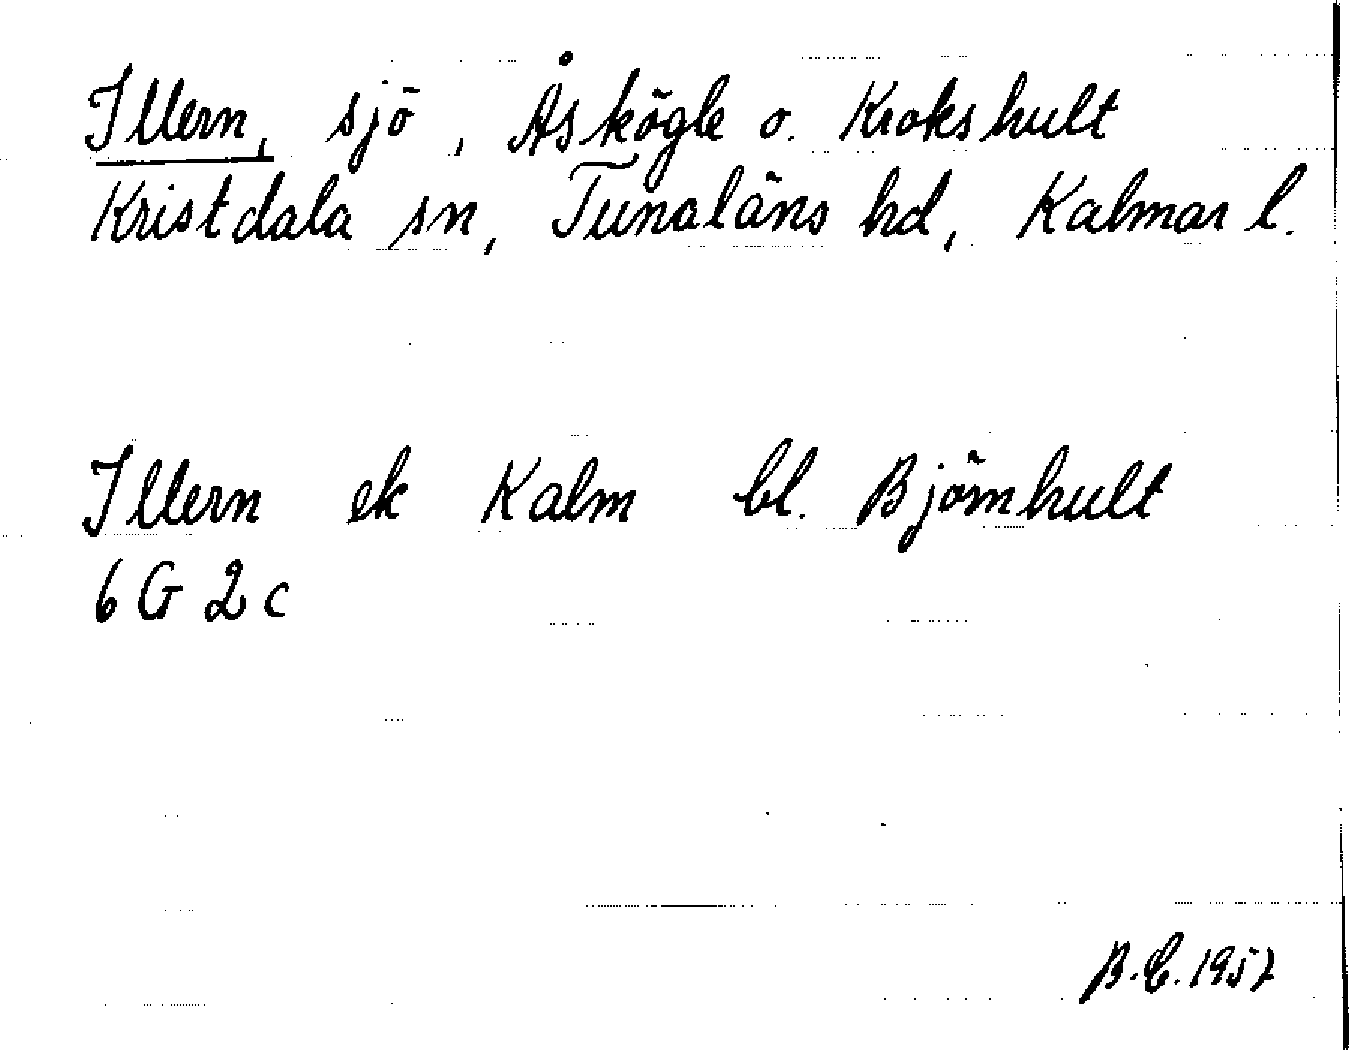 Illern, sjö, Åskögle o. Krokshult
Kristdala sn, Tunaläns hd, Kalmar l.
Illern ek Kalm bl. Björnhult
6 G 2 c
B.E. 1957